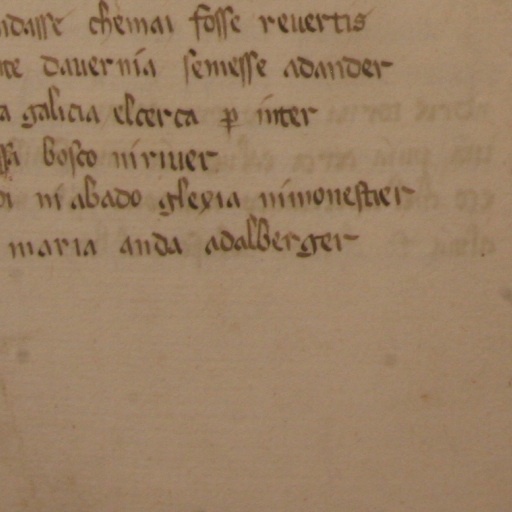 dasse chemai fosse revertis
te davernia semesse adander
a galicia el cerca ꝑ inter
ssa bosco ni river
oi ni abado glexia ni monestier
maria anda adalberger